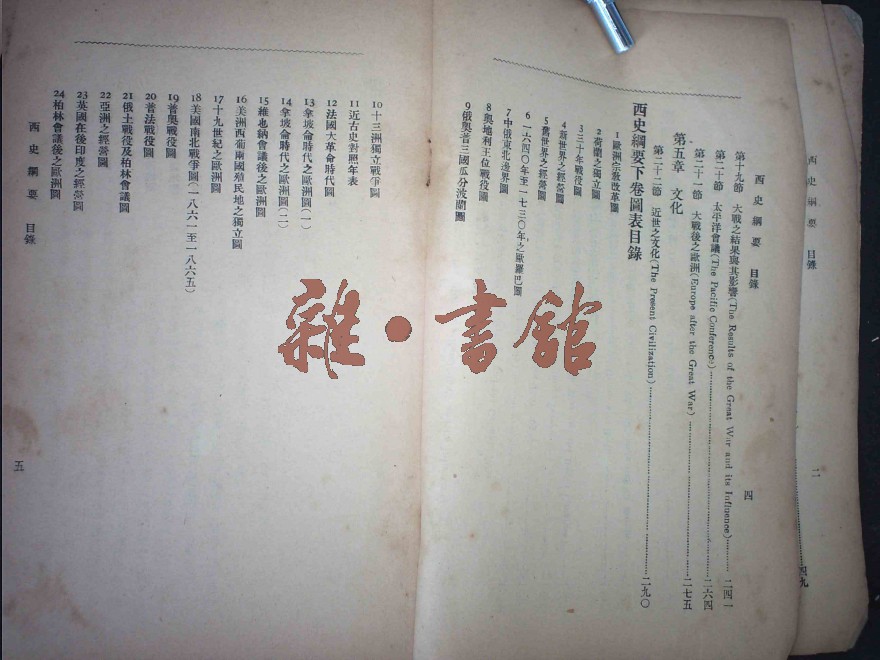 西史綱要 目錄
西史綱要 目錄
四
第十九節 大戰之結果與其影響(The Results of the Great War and its Influence)……二四一
第二十節 太平洋會議(The Pacific Conference)……二六四
第二十一節 大戰後之歐洲(Europe after the Great War)……二七五
第五章 文化
第二十二節 近世之文化(The Present Civilization)……二九〇
西史綱要下卷圖表目錄
1 歐洲宗教改革圖
2 荷蘭之獨立圖
3 三十年戰役圖
4 新世界之經營圖
5 舊世界之經營圖
6 一六四〇年至一七三〇年之歐羅巴圖
7 中俄東北邊界圖
8 奧地利王位戰役圖
9 俄奧普三國瓜分波蘭圖
10 十三洲獨立戰爭圖
11 近古史對照年表
12 法國大革命時代圖
13 拿坡侖時代之歐洲圖(一)
14 拿坡侖時代之歐洲圖(二)
15 維也納會議後之歐洲圖
16 美洲西葡兩國殖民地之獨立圖
17 十九世紀之歐洲圖
18 美國南北戰爭圖(一八六一至一八六五)
19 普奧戰役圖
20 普法戰役圖
21 俄土戰役及柏林會議圖
22 亞洲之經營圖
23 英國在後印度之經營圖
24 柏林會議後之歐洲圖
西史綱要 目錄
五
雜·書館